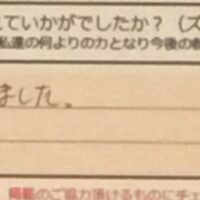 れていかがでしたか？（ズ
私達の何よりの力となり今後の
ました。
掲載のご協力頂けるものにチェ